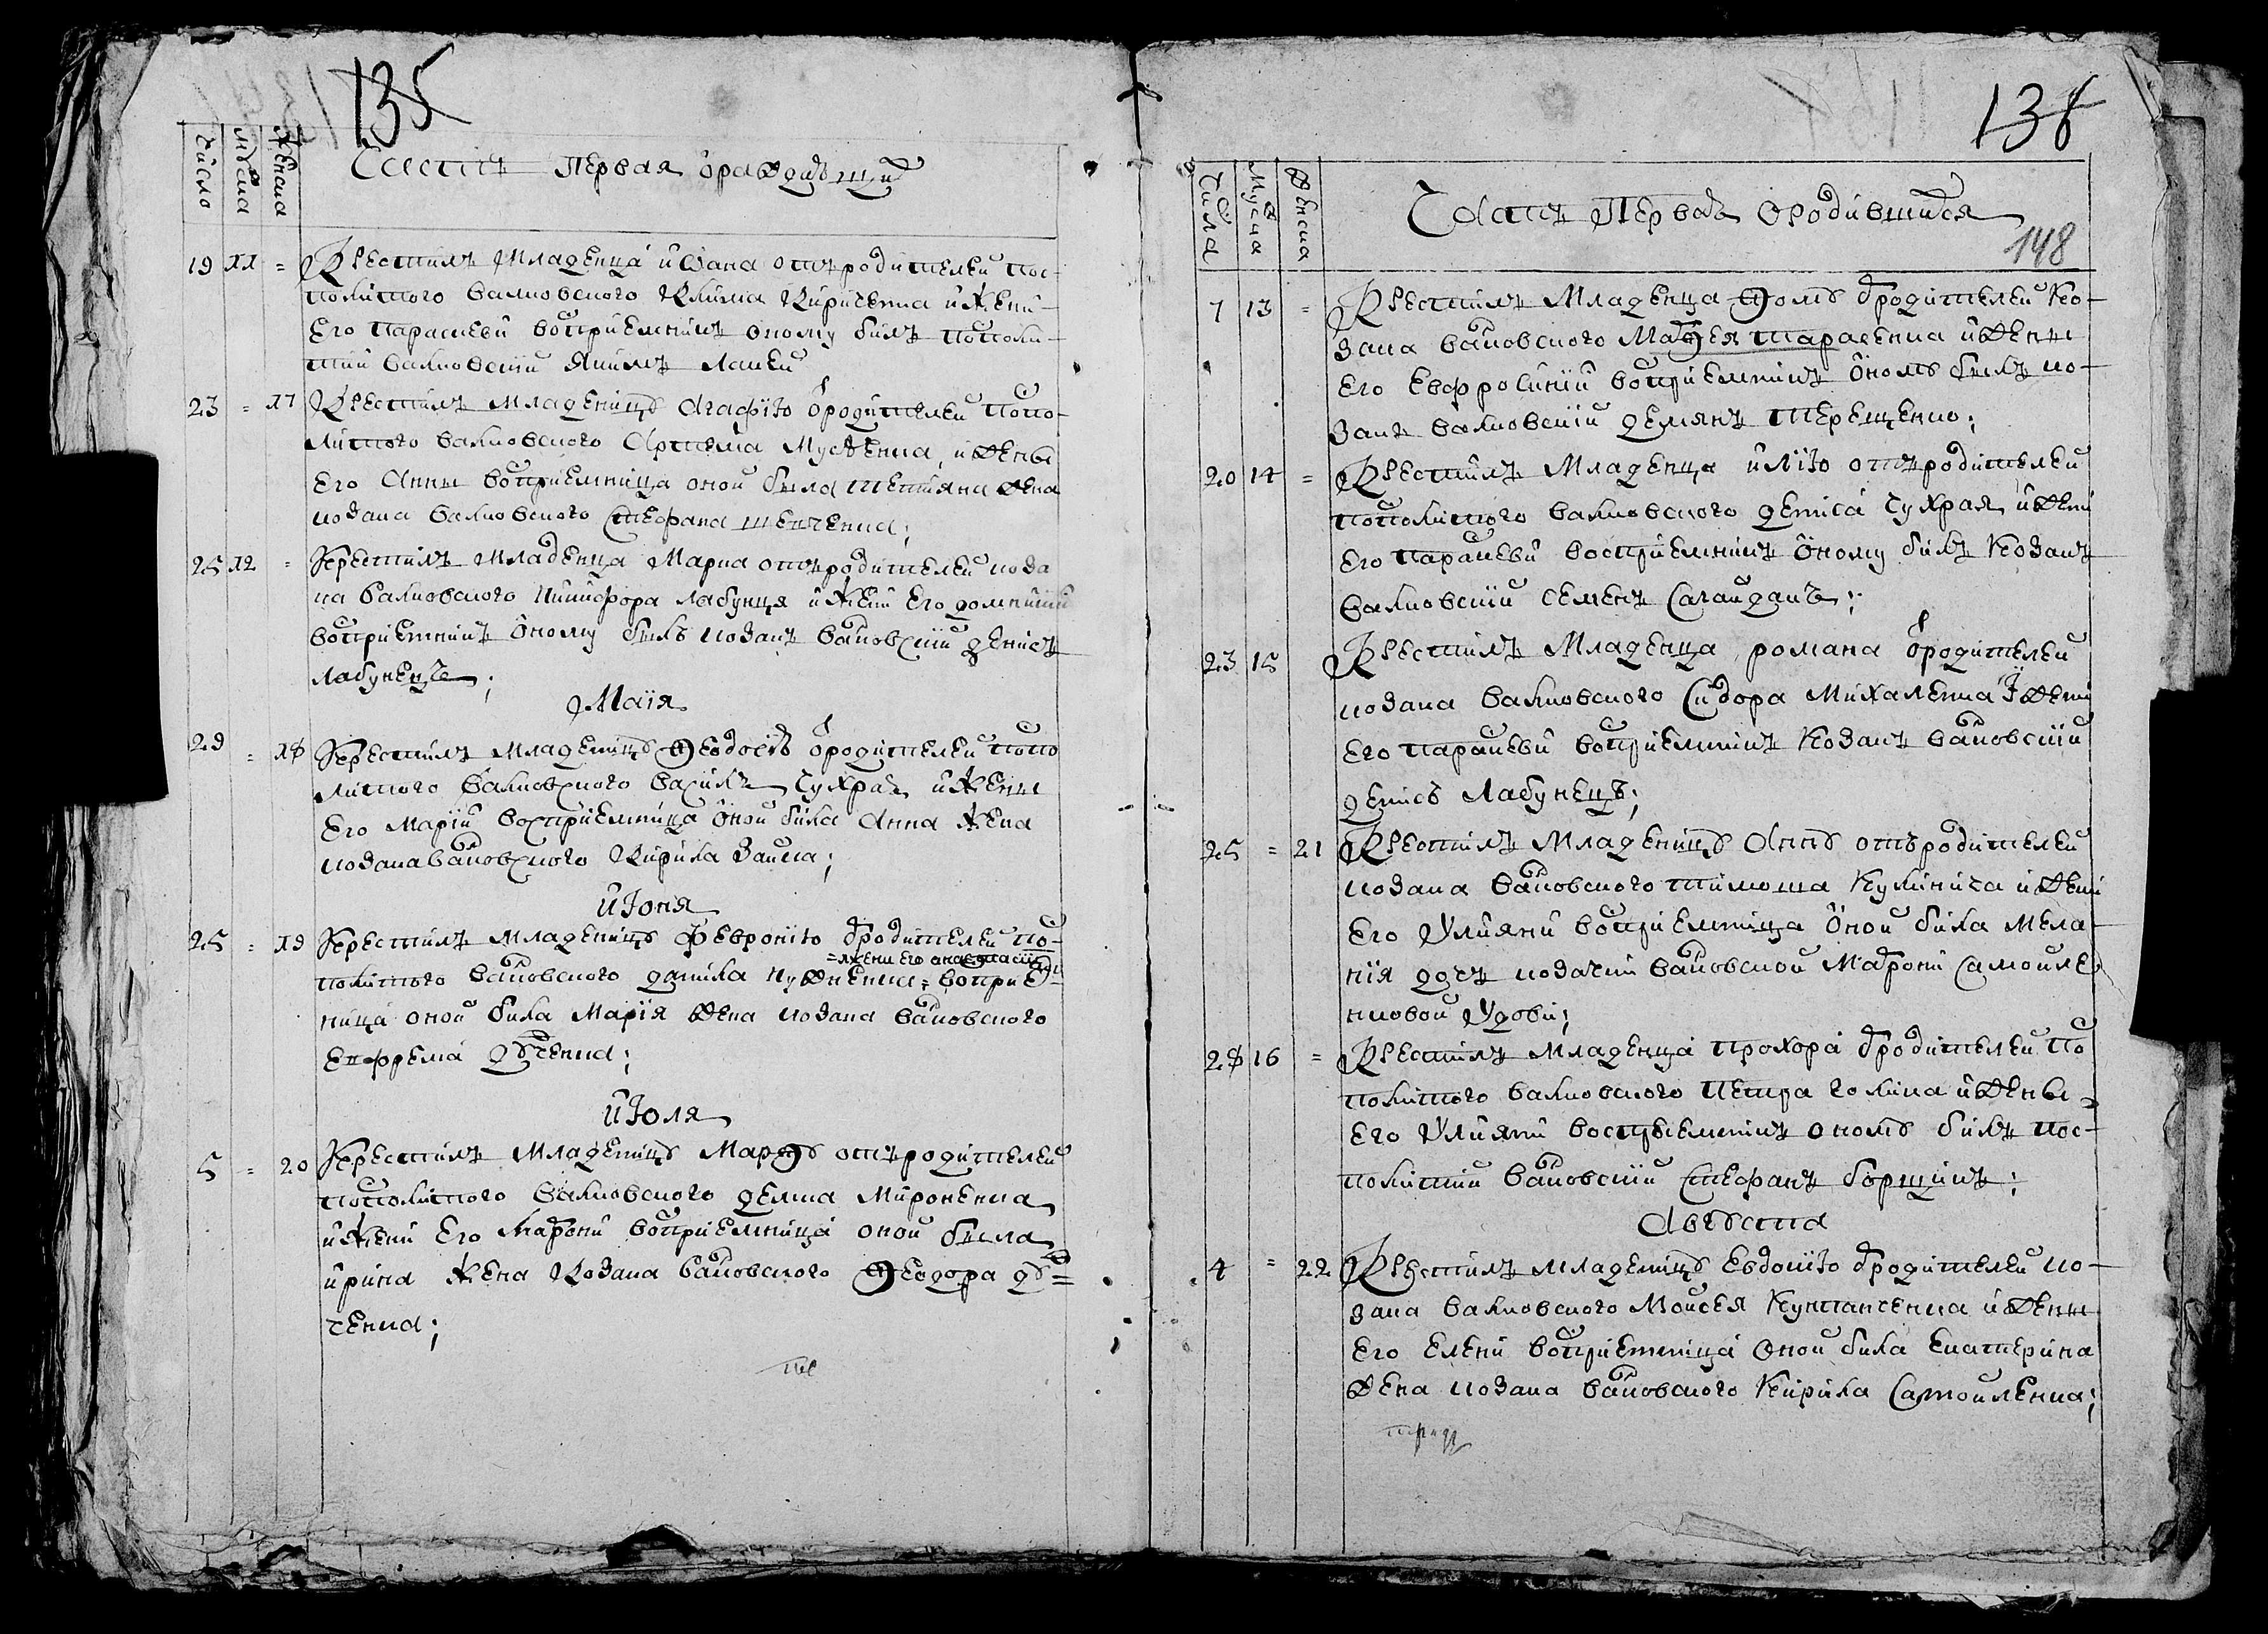 135
число
мужеска
женска
Части Первая о раждающи
19 11 = Крестилъ Младенца иѡана отъ родителей пос-
политого валковского Клима Кириченка и жени
Его Параскеви воспріемникъ оному билъ посполи-
тий валковский Якимъ
23 = 17 Крестилъ младеницѣ Агафію ѿ родителей поспо-
литого валковского Артема Мусѣенка, и жены
Его Анны воспріемница оной была татіяна жена
козака валковского Стефана шевченка;
25 12 = Крестилъ Младенца Марка отъ родителей коза
ка валковского Никифора лабунця и жени Его домникии
воспріемникъ оному былъ козакъ валковский денисъ
лабунецъ;
Маїя
29 = 18 Крестилъ младеницѣ Ѳеодосію ѿ родителей поспо
литого валковского васили Чухрая и жены
Его Маріи воспріемница оной била Анна жена
козака валковского Кирила Заика;
иЮня
25 = 19 Крестилъ младеницѣ Февронію ѿ родителей по-
= и жени его анастасіи
политого валковского данила нужненка = восприем-
ница оной била Марія жена козака валковского
Ефрема дяченка;
иЮля
5 = 20 Крестилъ младеницѣ Марѳѣ отъ родителей
посполитого валковского демка Мироненка
и жени Его Матрони воспріемница оной была
ирина жена Козака валковского Ѳеодора дя=
ченка;
138
числа
Мужска
женска
Части Первая о родившихся
148
7 13 = Крестилъ Младенца Ѳомѣ ѿ родителей Ко-
зака валковского Маѳея тарасенка и жены
Его Евфросиніи воспріемникъ ономѣ былъ ко-
закъ валковский демянъ терещенко;
20 14 = Крестилъ Младенца илію отъ родителей
посполитого валковского дениса Чухрая и жени
Его параскеви воспріемникъ оному билъ Козакъ
валковский семенъ Сагайдакъ;
23 15 Крестилъ Младенца романа ѿ родителей
козака валковского Сидора Михаленка и жени
Его параскеви воспріемникъ Козакъ валковский
денисъ лабунецъ;
25 = 21 Крестилъ Младеницѣ Аннѣ отъ родителей
козака валковского тимоша Кулинича и жени
Его Улияни воспріемница оной била Мела-
нія дочъ козачки валковской Матрони Самойле
нковой Удови;
28 16 = Крестилъ Младенца прохора ѿ родителей по
политого валковского Петра голика и жены =
Его Улияни воспріемникъ ономѣ билъ пос-
политий валковский Стефанъ борщикъ;
Августа
4 = 22 Крестилъ младеницѣ Евдокію ѿ родителей ко-
зака валковского Моисея Кунпанченка и жены
Его Елени воспріемница оной била Екатерина
жена козака валковского Кирила Самойленка;